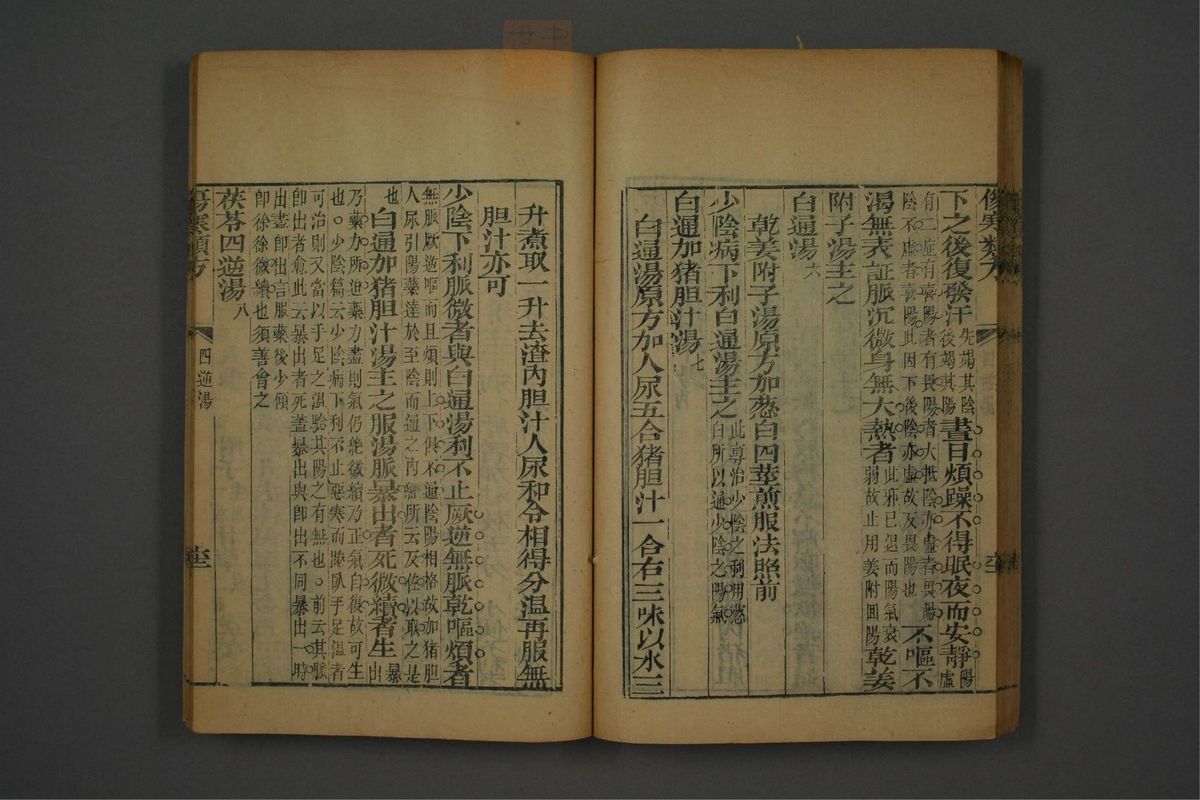 傷寒類方
下之後復發汗先竭其陰後竭其陽晝日煩躁不得眠夜而安靜陽虛
有二症有喜陽者有畏陽者大抵陰亦虛者畏陽
陰不虛者喜陽此因下後陰亦虛故反畏陽也不嘔不
渴無表証脈沉微身無大熱者此邪已退而陽氣衰弱故止用姜附回陽乾姜
附子湯主之
白通湯六
乾姜附子湯原方加葱白四莖煎服法照前
少陰病下利白通湯主之此專治少陰之利用葱白所以通少陰之陽氣
白通加猪胆汁湯七
白通湯原方加人尿五合猪胆汁一合右三味以水三
升煮取一升去渣內胆汁人尿和令相得分温再服無
胆汁亦可
少陰下利脈微者與白通湯利不止厥逆無脈乾嘔煩者
無脈厥逆嘔而且煩則上下俱不通陰陽相格故加猪胆
人尿引陽藥達於至陰而通之內經所云反佐以取之是
也白通加猪胆汁湯主之服湯脈暴出者死微續者生暴出
乃藥力所迫藥力盡則氣仍絕微續乃正氣自復故可生
也。少陰篇云少陰病下利不止惡寒而踡臥手足温者
可治則又當以手足之温騐其陽之有無也。前云其脈
即出者愈此云暴出者死盖暴出與即出不同暴出一時
出盡即出言服藥後少頃
即徐徐微續也須善會之
茯苓四逆湯八
傷寒類方 四逆湯